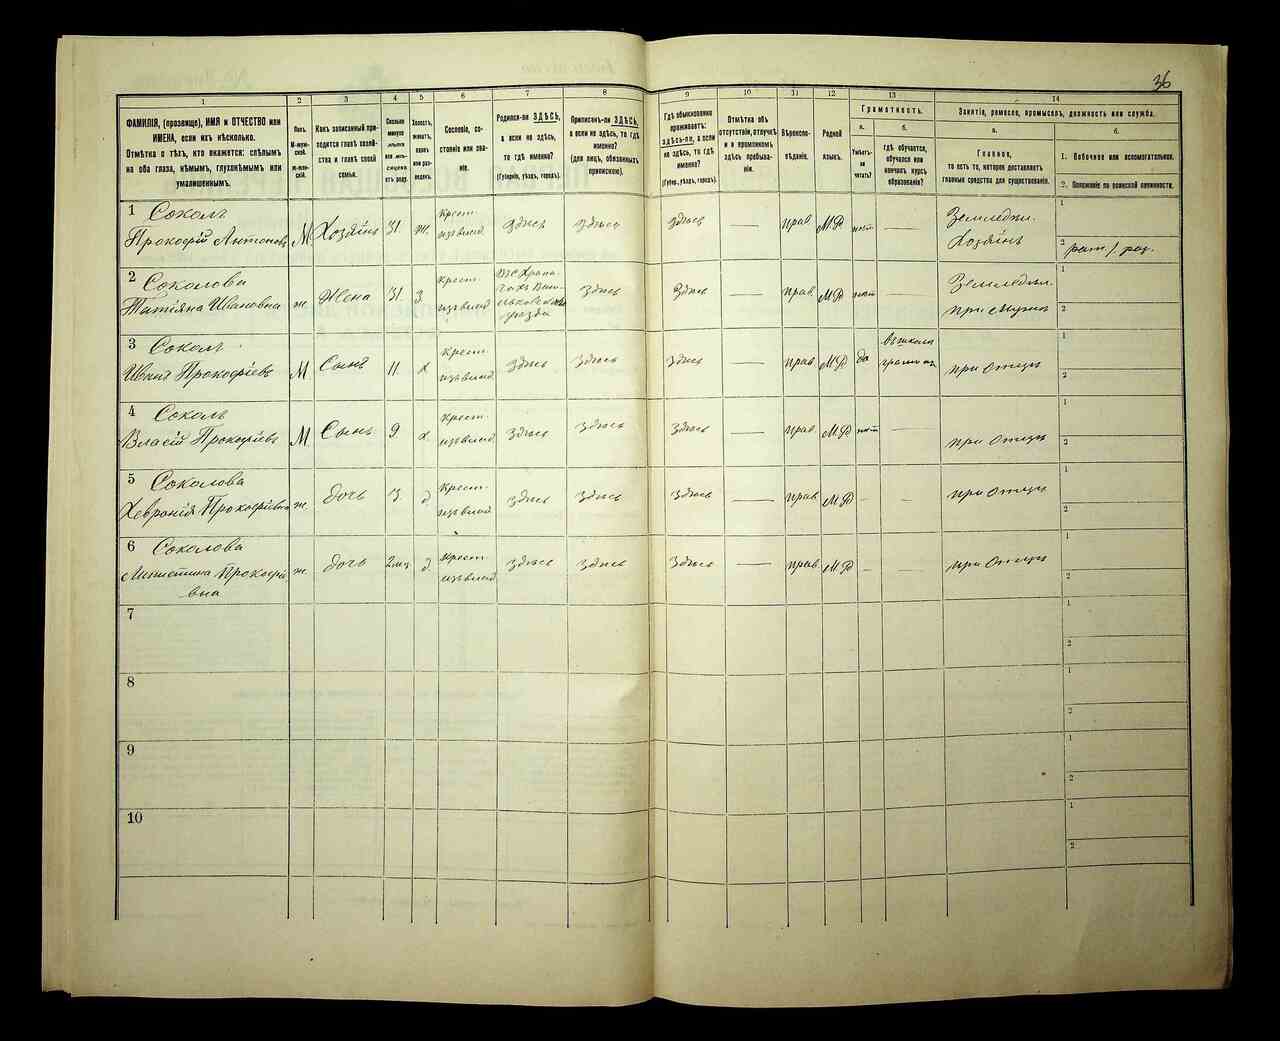 36
1 2 3 4 5 6 7 8 9 10 11 12 13 14
ФАМИЛІЯ, (прозвище), ИМЯ и ОТЧЕСТВО или
ИМЕНА, если ихъ нѣсколько.
Отмѣтка о тѣхъ, кто окажется: слѣпымъ
на оба глаза, нѣмымъ, глухонѣмымъ или
умалишеннымъ.
Полъ.
М-мужской.
Ж-женскій.
Какъ записанный приходится
главѣ хозяйства
и главѣ своей
семьи.
Сколько
минуло
лѣтъ
или мѣсяцевъ
отъ роду.
Холостъ,
женатъ,
вдовъ
или разведенъ.
Сословіе, состояніе
или званіе.
Родился-ли ЗДѢСЬ,
а если не здѣсь,
то гдѣ именно?
(Губернія, уѣздъ, городъ).
Приписанъ-ли ЗДѢСЬ,
а если не здѣсь, то гдѣ
именно?
(для лицъ, обязанныхъ
припискою).
Гдѣ обыкновенно
проживаетъ:
здѣсь-ли, а если
не здѣсь, то гдѣ
именно?
(Губер., уѣздъ, городъ).
Отмѣтка объ
отсутствіи, отлучкѣ
и о временномъ
здѣсь пребываніи.
Вѣроисповѣданіе.
Родной
языкъ.
Грамотность.
а. б.
Умѣетъ-ли
читать?
гдѣ обучается,
обучался или
кончилъ курсъ
образованія?
Занятіе, ремесло, промыселъ, должность или служба.
а. б.
Главное,
то есть то, которое доставляетъ
главныя средства для существованія.
1. Побочное или вспомогательное.
2. Положеніе по воинской повинности.
1 Соколъ
Прокофій Антоновъ М Хозяинъ 31 ж. Крест. изъ влад. Здѣсь Здѣсь Здѣсь — прав. МР нѣтъ — Земледѣл. Хозяинъ
1
2 рат. 1 раз.
2 Соколова
Татіяна Ивановна ж. Жена 31 З. Крест. изъ влад. уѣзда Здѣсь Здѣсь — прав. МР нѣтъ — Земледѣл. при мужѣ
1
2
3 Соколъ
Иванъ Прокофіевъ М Сынъ 11 х Крест. изъ влад. Здѣсь Здѣсь Здѣсь — прав. МР да въ школѣ при отцѣ
1
2
4 Соколъ
Власій Прокофіевъ М Сынъ 9 х. Крест. изъ влад. Здѣсь Здѣсь Здѣсь — прав. МР нѣтъ — при отцѣ
1
2
5 Соколова
Хевронія Прокофіевна ж. дочь 3 д Крест. изъ влад. Здѣсь Здѣсь Здѣсь — прав МР - - при отцѣ
1
2
6 Соколова
Прокофіевна ж. дочь д. Крест. изъ влад. Здѣсь Здѣсь Здѣсь — прав. МР - - при отцѣ
1
2
7
1
2
8
1
2
9
1
2
10
1
2